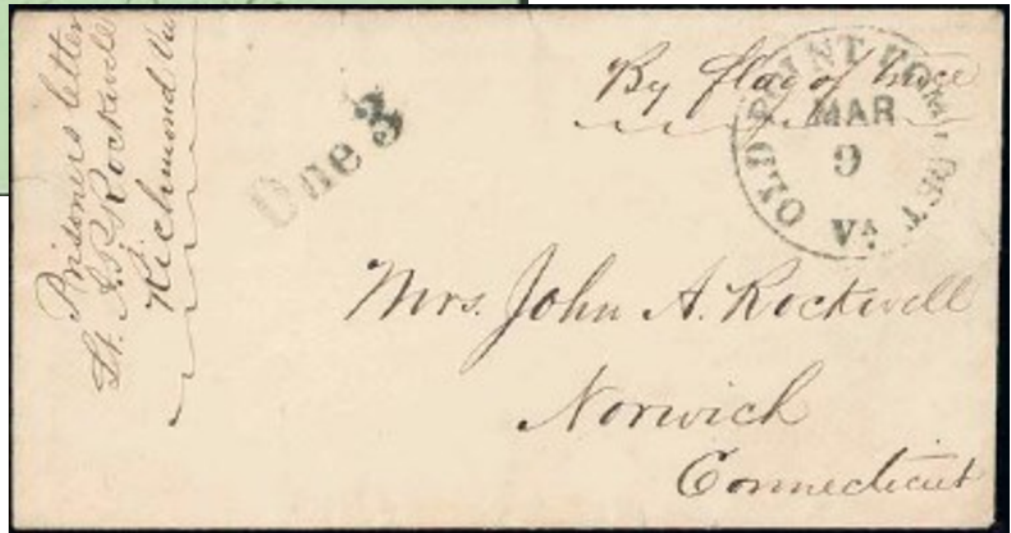 Prisoners letter
Lt. A.P. Rockwell
Richmond Va
Due 3
By flag of truce
OLD POINT COMFORT
MAR
9
VA
Mrs. John A. Rockwell
Norwich
Connecticut